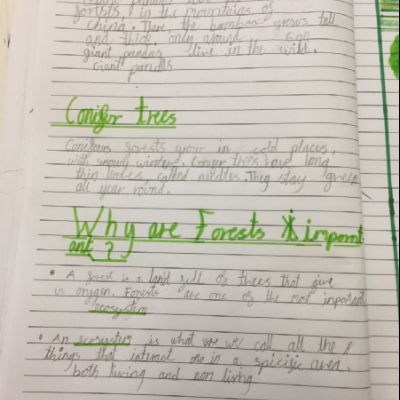 forests, in the mountains of
china. Here the bamboo grows tall
and thick. only around 600
giant pandas live in the wild.
Giant panda's
Conifer trees
Coniferous forests grow in cold places,
with snowy winters. Conifer trees have long
thin leaves, called needles. They stay green
all year round.
Why are Forests importnt
ant?
• A forest is a land full of trees that give
us oxygen. Forests are one of the most important
ecosystem
• An ecosystem is what we call all the
things that interact one in a spicific area,
both living and non living